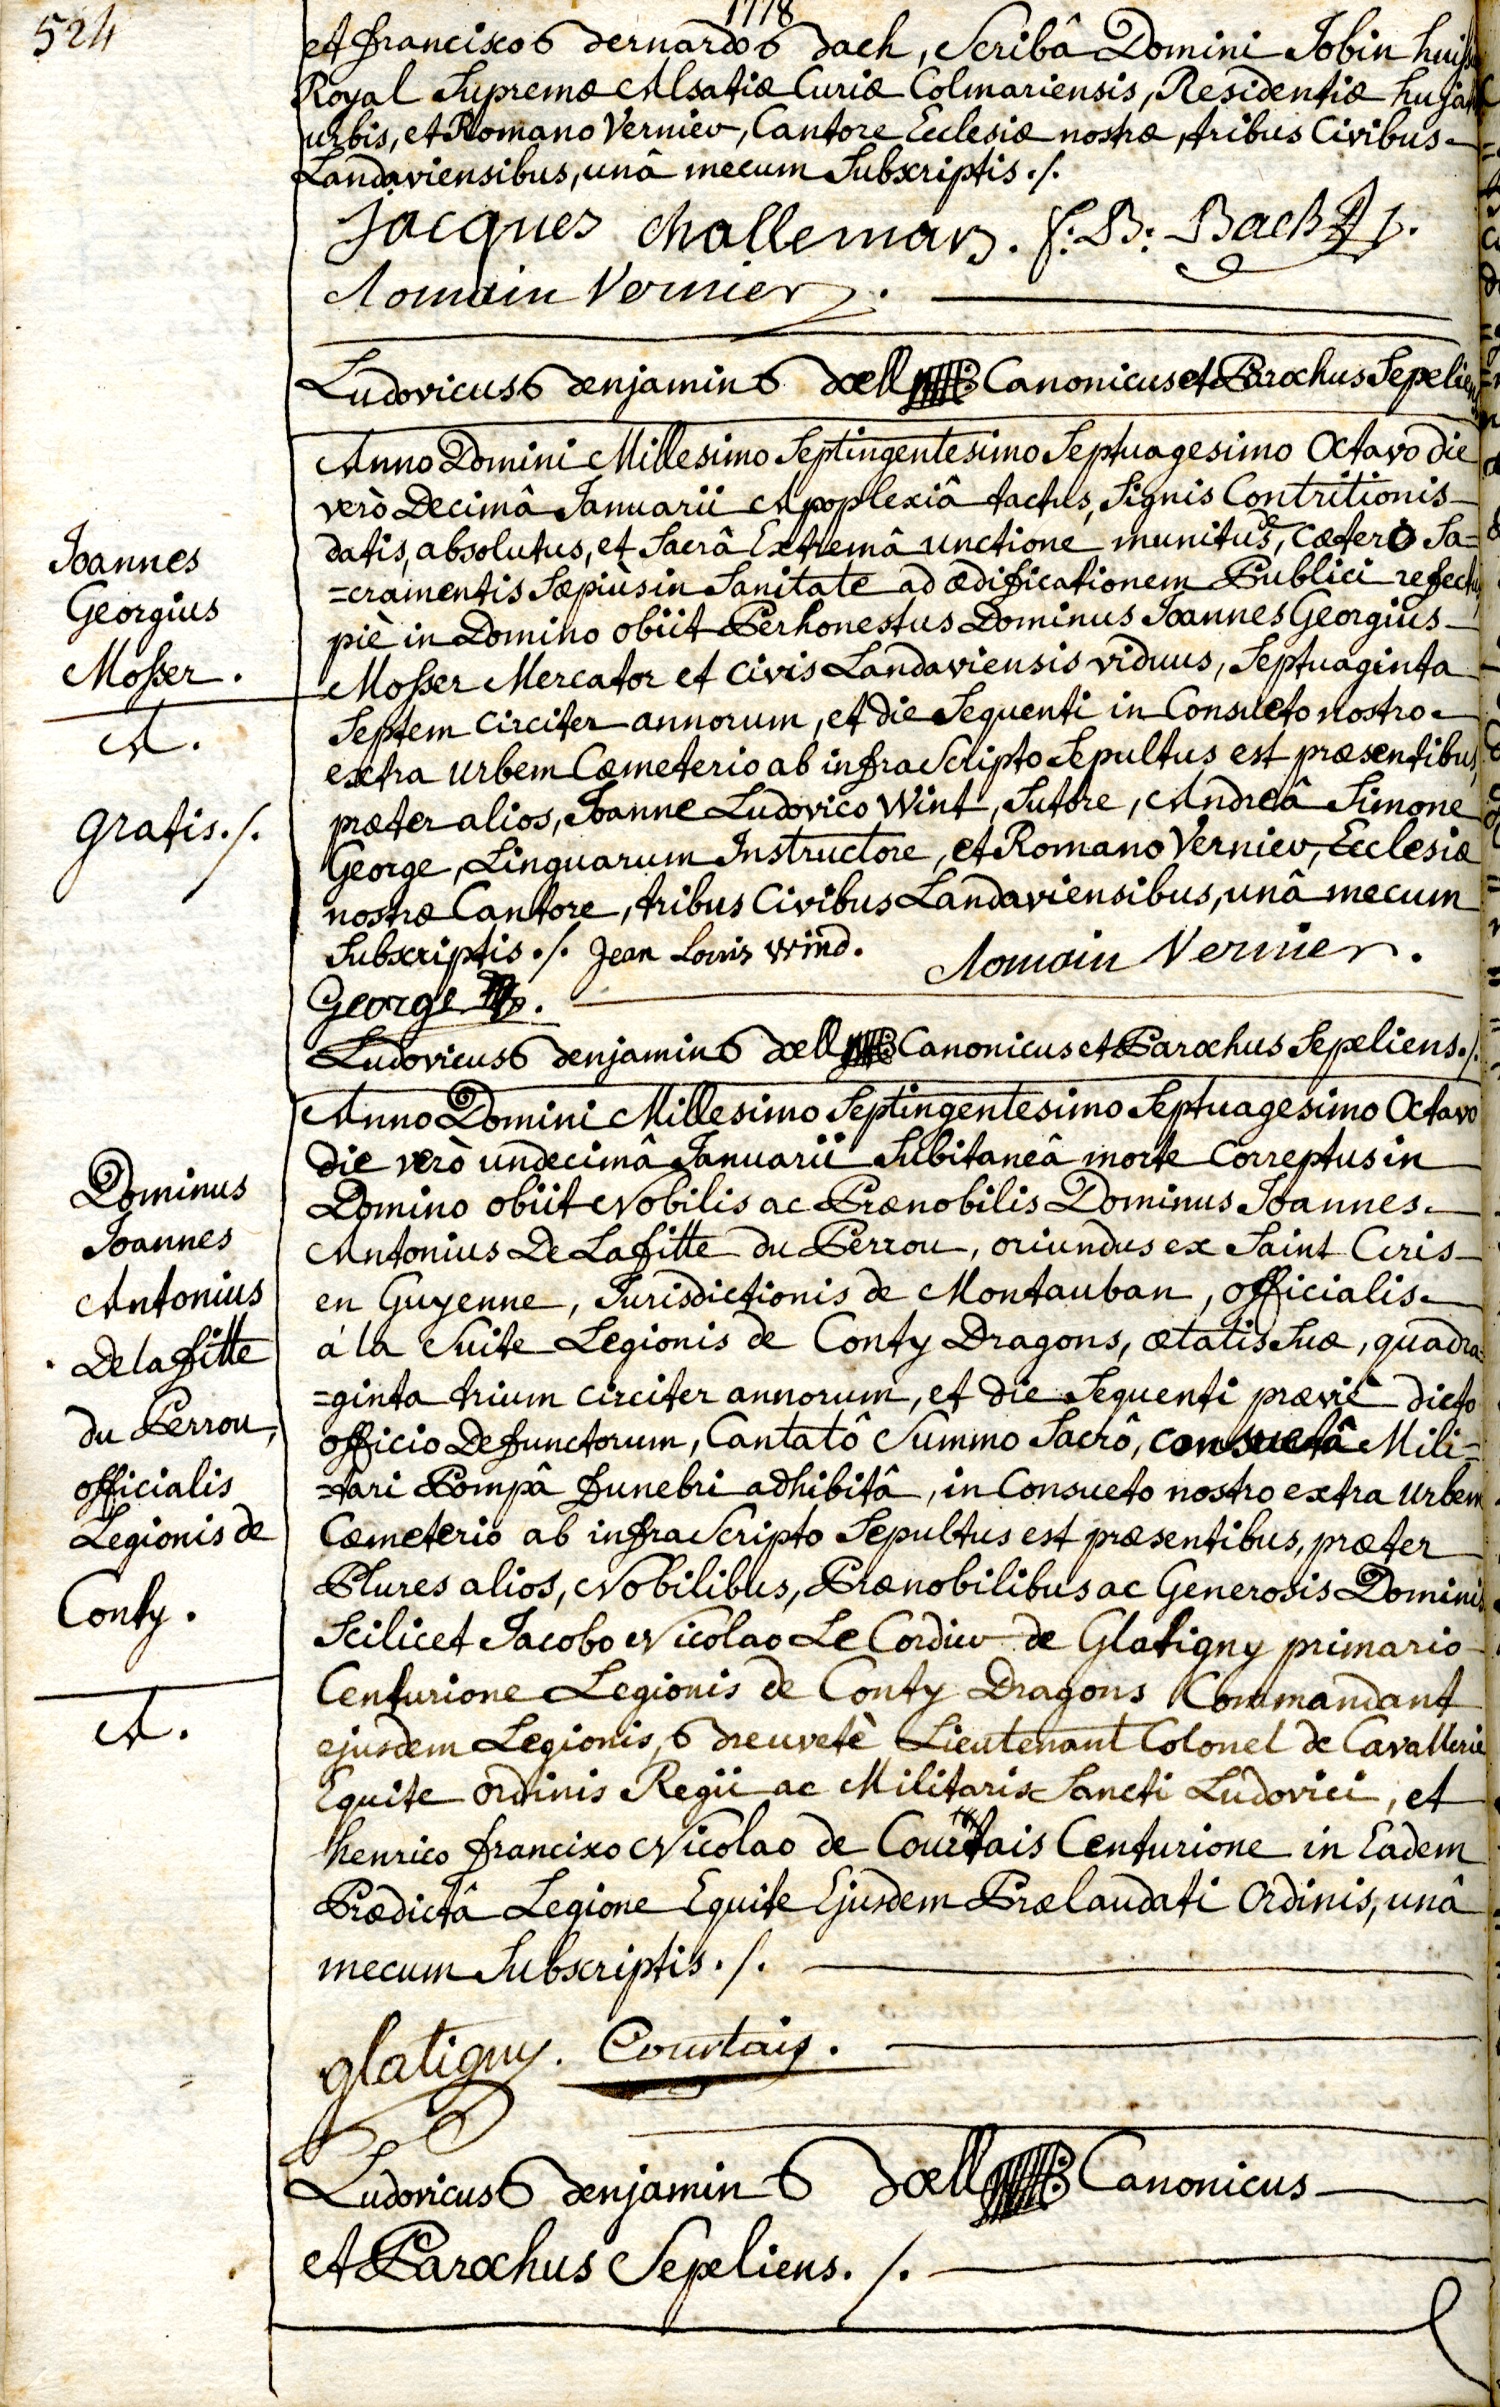 524
1778
et Francisco Bernardo Bach, Scribâ Domini Jobin huiss
Royal Supremæ Alsatiæ Curiæ Colmariensis, Residentiæ hujat
urbis, et Romano Vernier, Cantore Ecclesiæ nostræ, tribus Civibus
Landaviensibus, unâ mecum Subscriptis ./.
Jacques challemars. f: B: Bach
Romain Vernier.
Ludovicus Benjamin Boell Canonicus et Parochus Sepeliens
Joannes
Georgius
Mosser.
A.
gratis ./.
Anno Domini Millesimo Septingentesimo Septuagesimo Octavo die
verò Decimâ Januarii Apoplexiâ tactus, Signis Contritionis
datis, absolutus, et Sacrâ Extremâ unctione munitus, cæterò Sa=
=cramentis Sæpiùs in Sanitate ad ædificationem Publici refectus,
piè in Domino obiit Perhonestus Dominus Joannes Georgius
Mosser Mercator et civis Landaviensis viduus, Septuaginta
Septem circiter annorum, et die Sequenti in Consueto nostro
extra urbem Cæmeterio ab infraScripto Sepultus est præsentibus,
præter alios, Joanne Ludovico Wint, Sutore, Andreâ Simone
George, Linguarum Instructore, et Romano Vernier, Ecclesiæ
nostræ Cantore, tribus Civibus Landaviensibus, unâ mecum
Subscriptis ./. Jean Louis Wind. Romain Vernier.
George
Ludovicus Benjamin Boell Canonicus et Parochus Sepeliens ./.
Dominus
Joannes
Antonius
De lafitte
du Perrou,
officialis
Legionis de
Conty.
A.
Anno Domini Millesimo Septingentesimo Septuagesimo Octavo
die verò undecimâ Januarii Subitaneâ morte Correptus in
Domino obiit Nobilis ac Prænobilis Dominus Joannes
Antonius De Lafitte du Perrou, oriundus ex Saint Ciris
en Guyenne, Jurisdictionis de Montauban, officialis
à la Suite Legionis de Conty Dragons, ætatis Suæ, quadra=
=ginta trium circiter annorum, et die Sequenti præviè dicto
officio Defunctorum, Cantatô Summo Sacrô, consuetâ Mili=
=tari Pompâ funebri adhibitâ, in Consueto nostro extra urbem
Cæmeterio ab infraScripto Sepultus est præsentibus, præter
Plures alios, Nobilibus, Prænobilibus ac Generosis Dominis
Scilicet Jacobo Nicolao Le Cordier de Glatigny primario
Centurione Legionis de Conty Dragons Commandant
ejusdem Legionis, Breuvetè Lieutenant Colonel de Cavallerie
Equite ordinis Regii ac Militaris Sancti Ludovici, et
henrico francisco Nicolao de Courtais Centurione in Eadem
Prædictâ Legione Equite Ejusdem Prælaudati Ordinis, unâ
mecum Subscriptis ./.
glatigny. Courtais.
Ludovicus Benjamin Boell Canonicus
et Parochus Sepeliens ./.